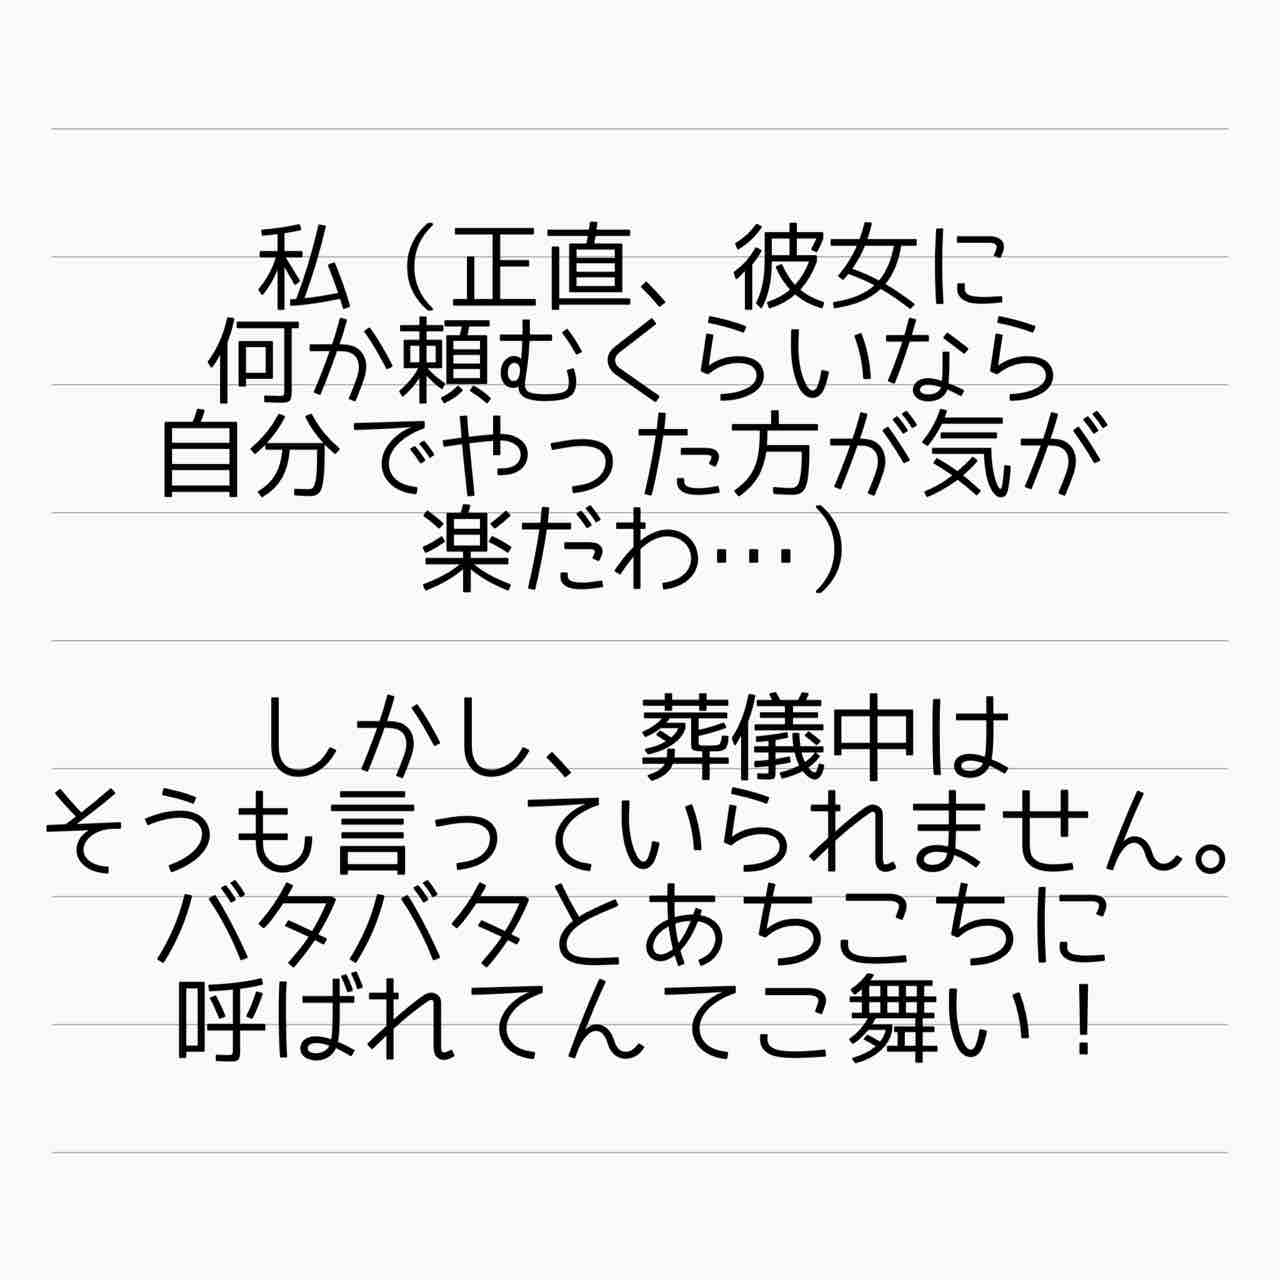 私（正直、彼女に
何か頼むくらいなら
自分でやった方が気が
楽だわ…）
しかし、葬儀中は
そうも言っていられません。
バタバタとあちこちに
呼ばれてんてこ舞い！